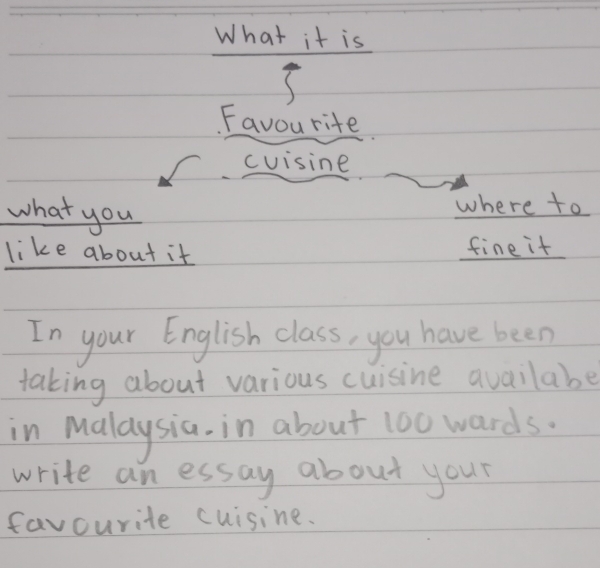 What it is
Favourite
cuisine
what you
like about it
where to
fine it
In your English class, you have been
taking about various cuisine availabe
in Malaysia. in about 100 wards.
write an essay about your
favourite cuisine.